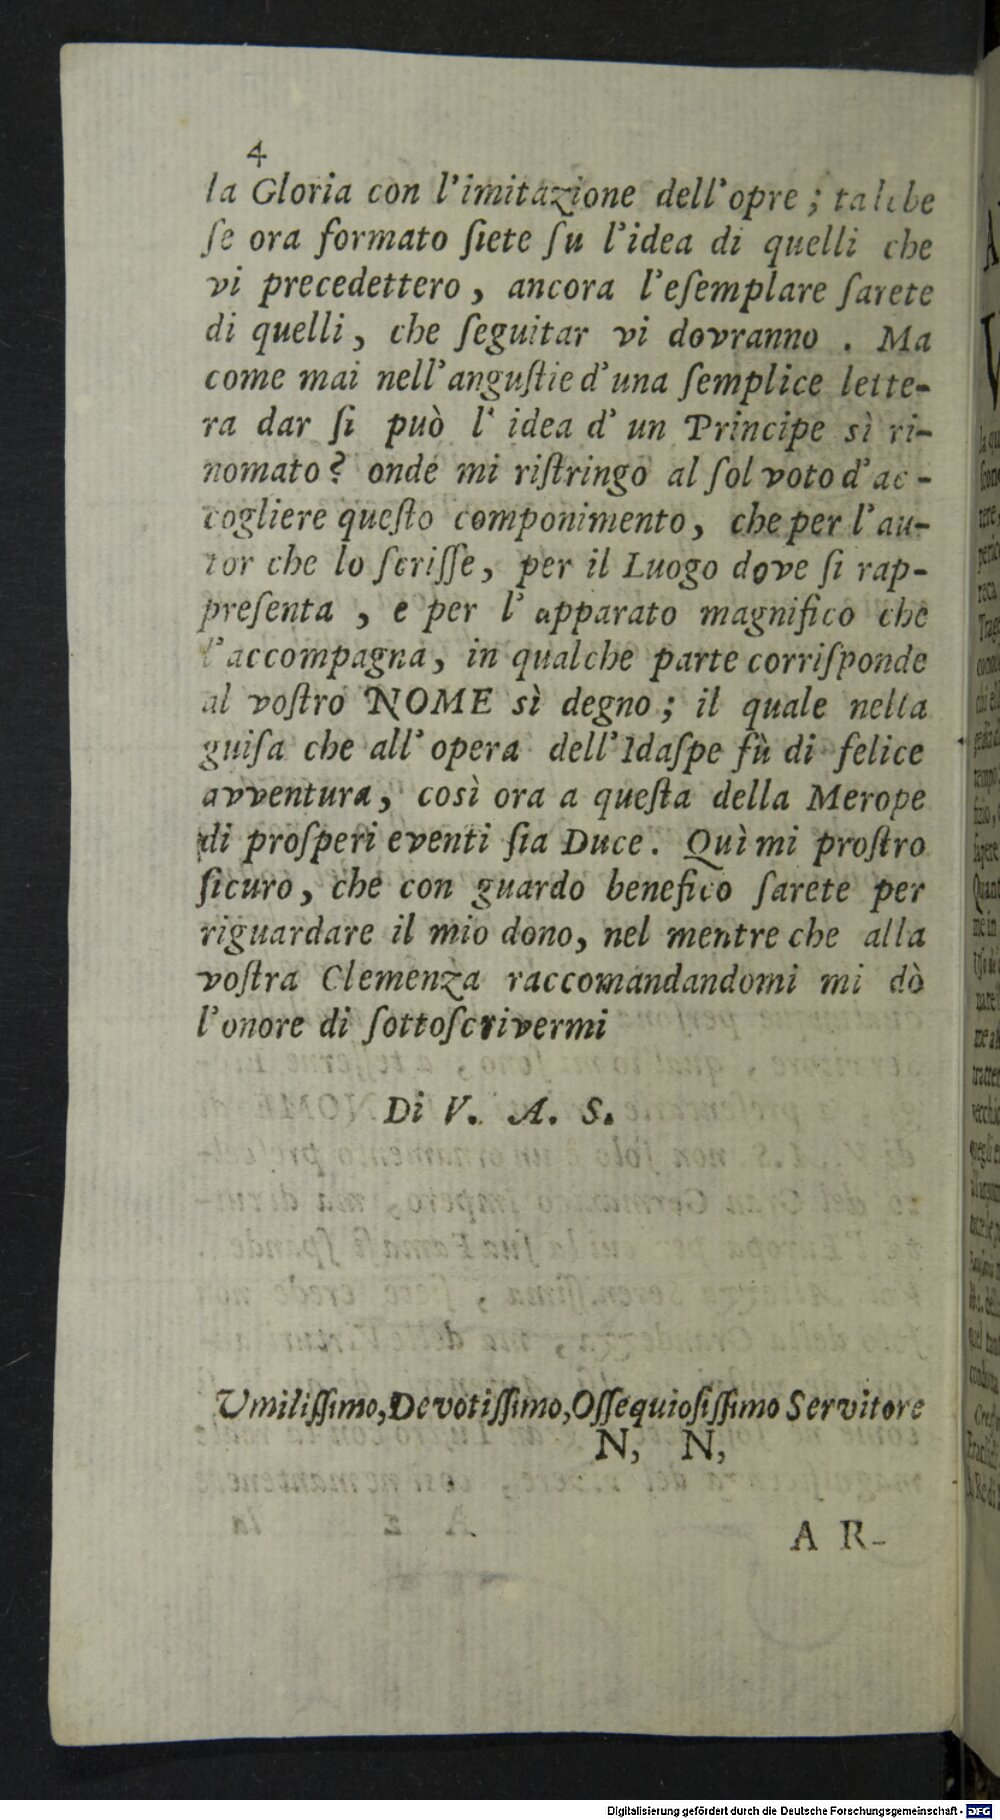 4
la Gloria con l'imitazione dell'opre ; talche
ſe ora formato ſiete ſu l'idea di quelli che
vi precedettero , ancora l'eſemplare ſarete
di quelli , che ſeguitar vi dovranno . Ma
come mai nell'anguſtie d'una ſemplice lette-
ra dar ſi può l' idea d' un Principe sì ri-
nomato ? onde mi riſtringo al ſol voto d'ac-
cogliere queſto componimento , che per l'au-
tor che lo ſcriſſe , per il Luogo dove ſi rap-
preſenta , e per l' apparato magnifico che
l'accompagna , in qualche parte corriſponde
al voſtro NOME sì degno ; il quale nella
guiſa che all' opera dell'Idaſpe fù di felice
avventura , così ora a queſta della Merope
di proſperi eventi ſia Duce . Quì mi proſtro
ſicuro , che con guardo benefico ſarete per
riguardare il mio dono , nel mentre che alla
voſtra Clemenza raccomandandomi mi dò
l'onore di ſottoſcrivermi
Di V. A. S.
Umiliſſimo, Devotiſſimo, Oſſequioſiſſimo Servitore
N, N,
A R-
Digitalisierung gefördert durch die Deutsche Forschungsgemeinschaft - DFG